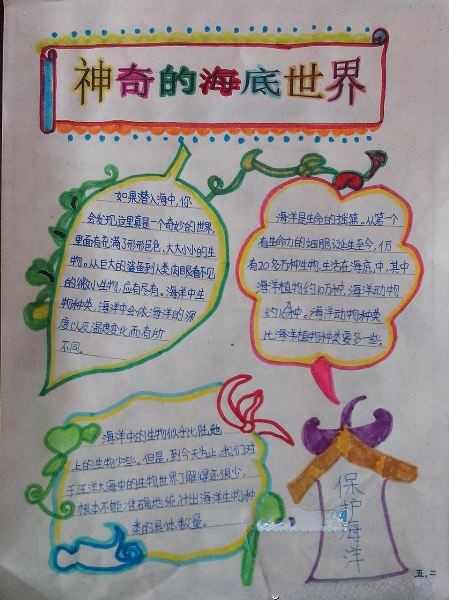 神奇的海底世界
如果潜入海中,你
会发现这里真是一个奇妙的世界,
里面布满了形形色色、大大小小的生
物。从巨大的鲨鱼到人类肉眼看不见
的微小生物,应有尽有。海洋中生
物种类,海洋中会依海洋的深
度以及温度变化而有所
不同。
海洋是生命的摇篮。从第一个
有生命力的细胞诞生至今,仍
有20多万种生物,生活在海底,中,其中
海洋植物约10万种,海洋动物
约16种。海洋动物种类
比海洋植物种类要多一些。
海洋中的生物似乎比陆地
上的生物少些。但是,到今天为止,我们对
于汪洋大海中的生物世界了解得还很少,
根本不能准确地统计出海洋生物种
类的具体数量。
保护海洋
五.二